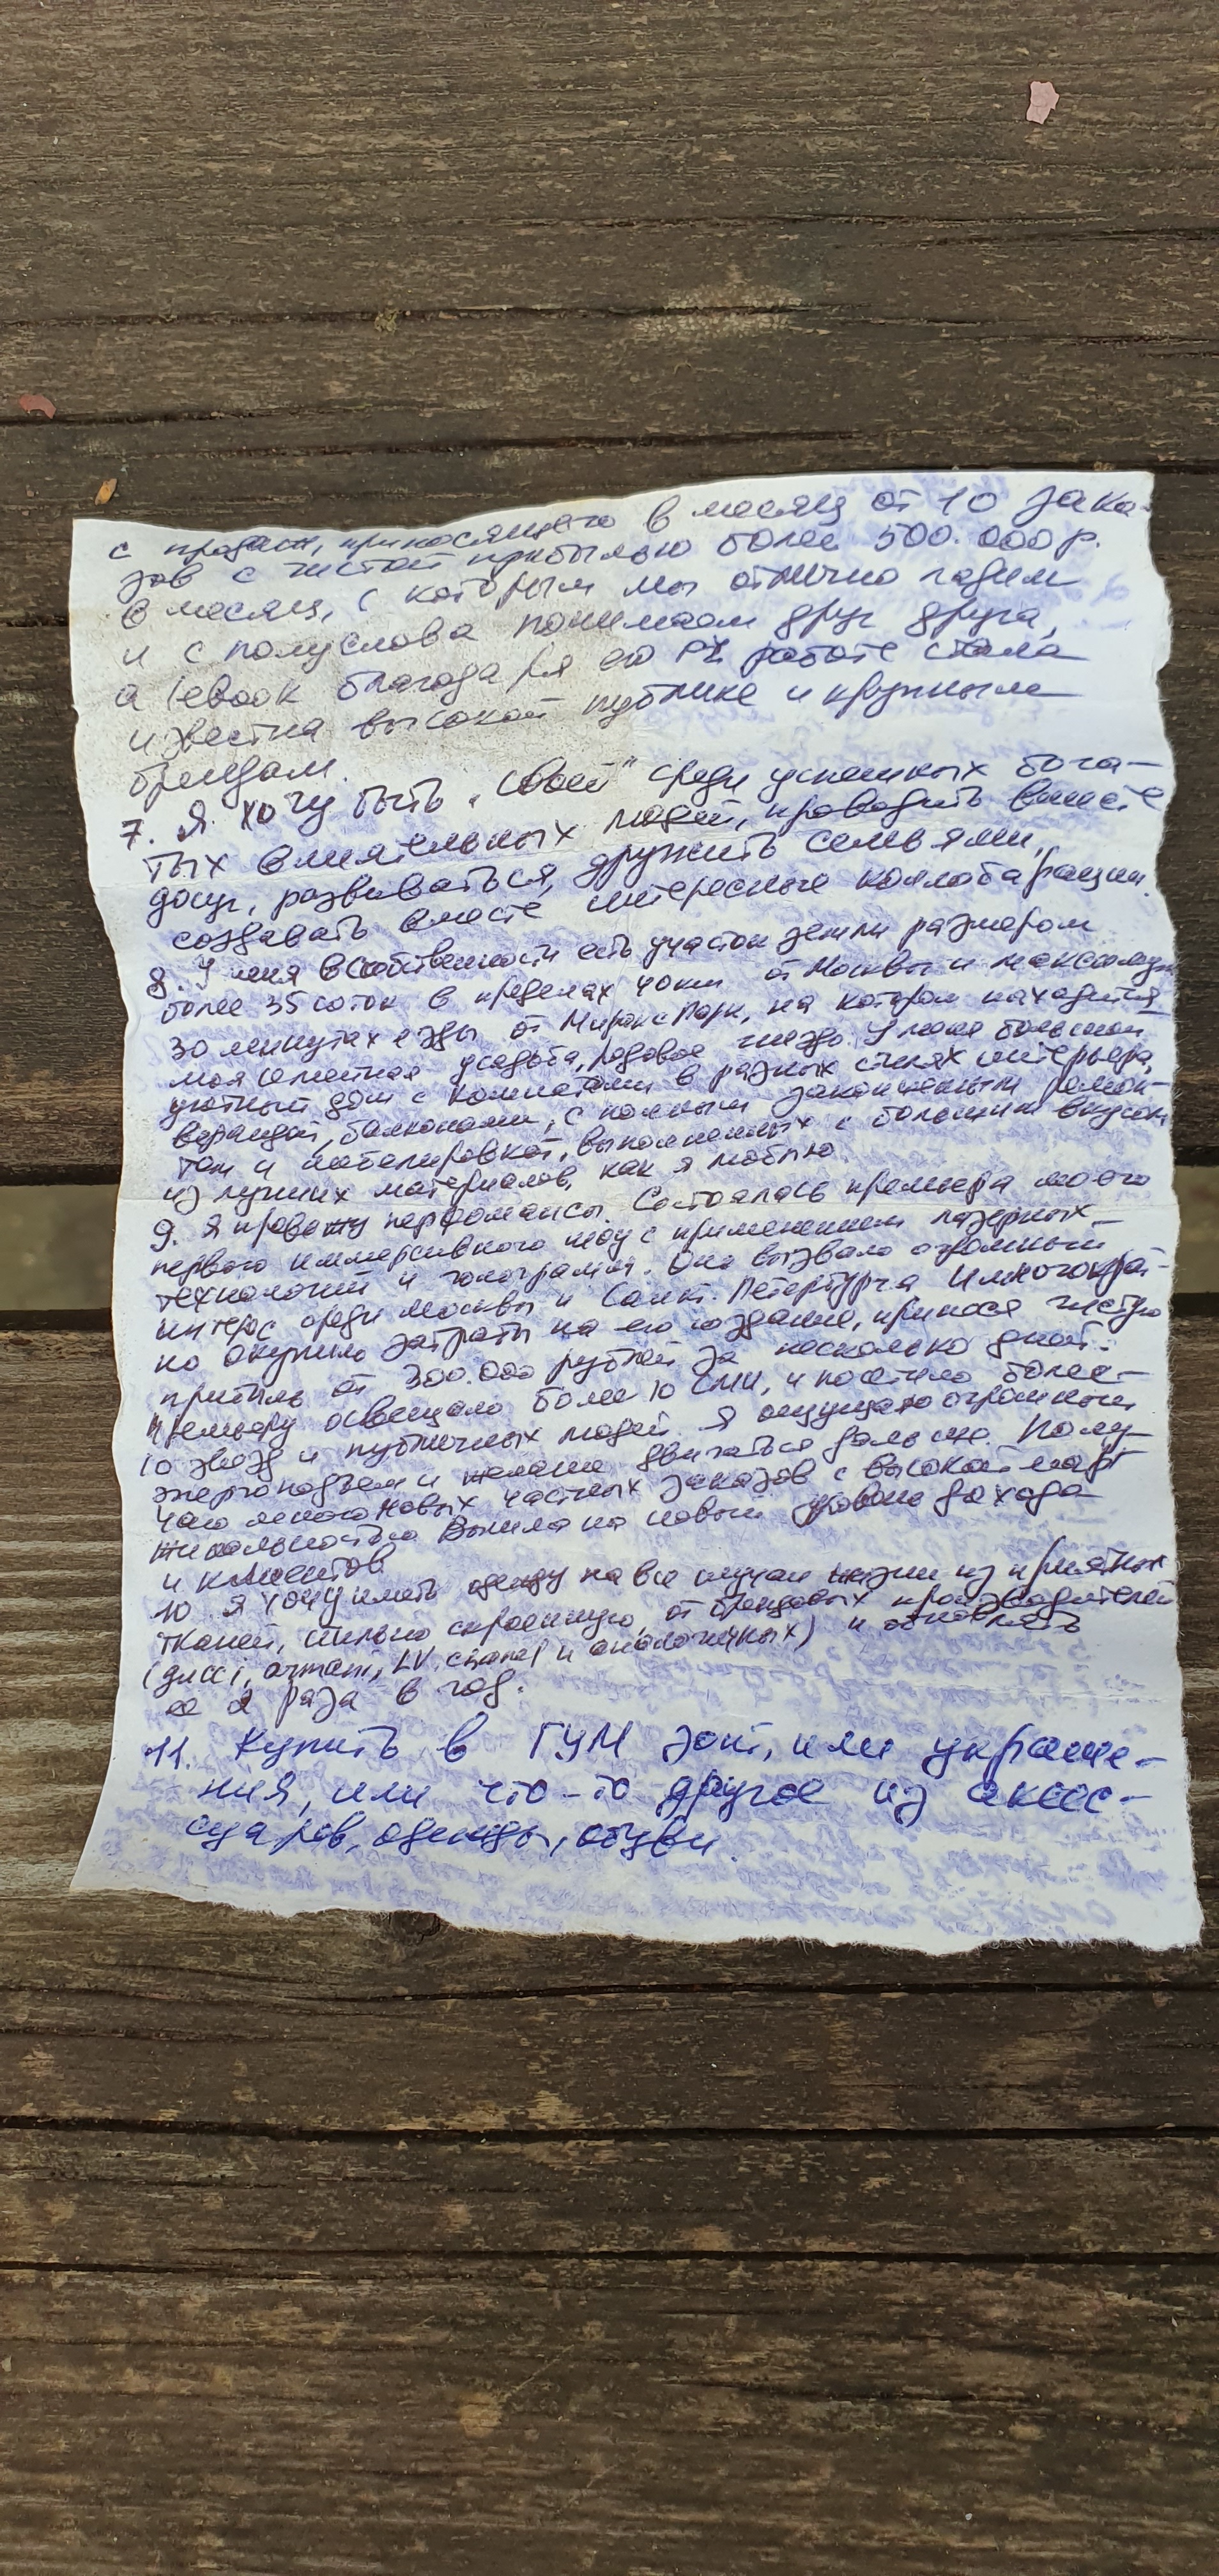 с продаж, приносящего в месяц от 10 зака-
зов с чистой прибылью более 500.000 р.
в месяц, с которым мы отлично ладим
и с полуслова понимаем друг друга,
а благодаря его работе стала
известна высокой публике и крупным
брендам.
7. Я хочу быть "своей" среди успешных бога-
тых влиятельных людей, проводить вместе
досуг, развиваться, дружить семьями,
создавать вместе интересные коллоборации.
8. У меня в собственности есть участок земли размером
более 35 соток в пределах 40км от Москвы и максимум
30 минутах езды от Миракс Парк, на котором находится
моя семейная усадьба, родовое гнездо. У меня большой
уютный дом с комнатами в разных стилях интерьера,
верандой, балконами, с полным законченным ремон-
том и меблировкой, выполненных с большим вкусом,
из лучших материалов, как я люблю.
9. Я провожу перфомансы. Состоялась премьера моего
первого иммерсивного шоу с применением лазерных
технологий и голограмм. Оно вызвало огромный
интерес среди Москвы и Санкт-Петербурга и многократ-
но окупило затраты на его создание, принося чистую
прибыль от 300.000 рублей за несколько дней.
Премьеру освещало более 10 СМИ, и посетило более
10 звезд и публичных людей. Я ощущаю огромный
энергоподъем и желание двигаться дальше. Полу-
чаю много новых частных заказов с высокой мар-
жинальностью. Вышла на новый уровень дохода
и клиентов
10 Я хочу иметь одежду на все случаи жизни из приятных
тканей, стильно скроенную, от брендовых производителей
(gucci, armani, LV, chanel и аналогичных) и обновлять
ее 2 раза в год.
11. Купить в ГУМ зонт, или украше-
ния, или что-то другое из аксес-
суаров, одежды, обуви.